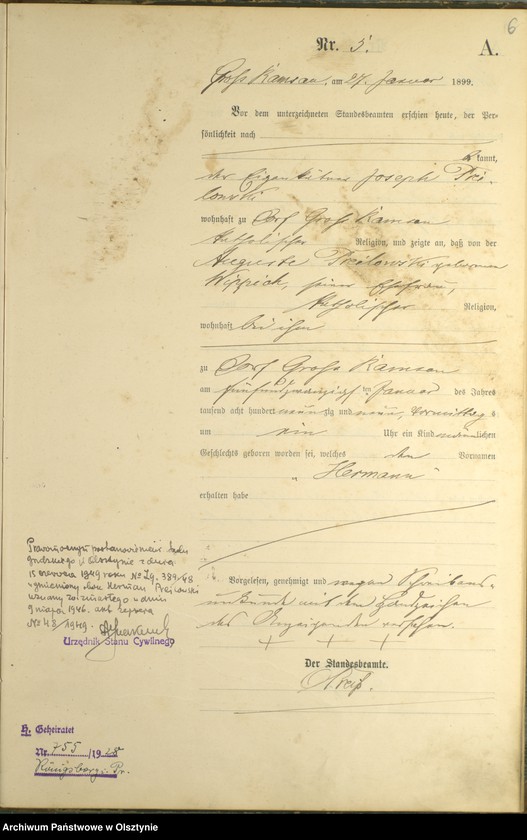 6
Nr. 5. A.
Groß Ramsau, am 27. Januar 1899.
Vor dem unterzeichneten Standesbeamten erschien heute, der Per-
sönlichkeit nach
kannt,
der Eigenkätner Joseph
wohnhaft zu Dorf Groß Ramsau
katholischer Religion, und zeigte an, daß von der
Auguste geborenen
seiner Ehefrau,
katholischer Religion,
wohnhaft bei ihm
zu Dorf Groß Ramsau
am fünfundzwanzigsten Januar des Jahres
tausend acht hundert neunzig und neun, Vormittags
um ein Uhr ein Kind männlichen
Geschlechts geboren worden sei, welches den Vornamen
„Hermann"
erhalten habe
Vorgelesen, genehmigt und wegen Schreibens-
unkunde mit dem Handzeichen
des Anzeigenden versehen.
+ + +
Der Standesbeamte.
Prawomocnym postanowieniem Sądu
Grodzkiego w Olsztynie z dnia
15 czerwca 1949 roku Nr. Zg. 389/48
wymieniony obok Herman
uznany za zmarłego w dniu
9 maja 1946. akt zgonu
Nr 43/1949.
Urzędnik Stanu Cywilnego
H. Geheiratet
Nr. 755/1928
Königsberg i. Pr.
Archiwum Państwowe w Olsztynie